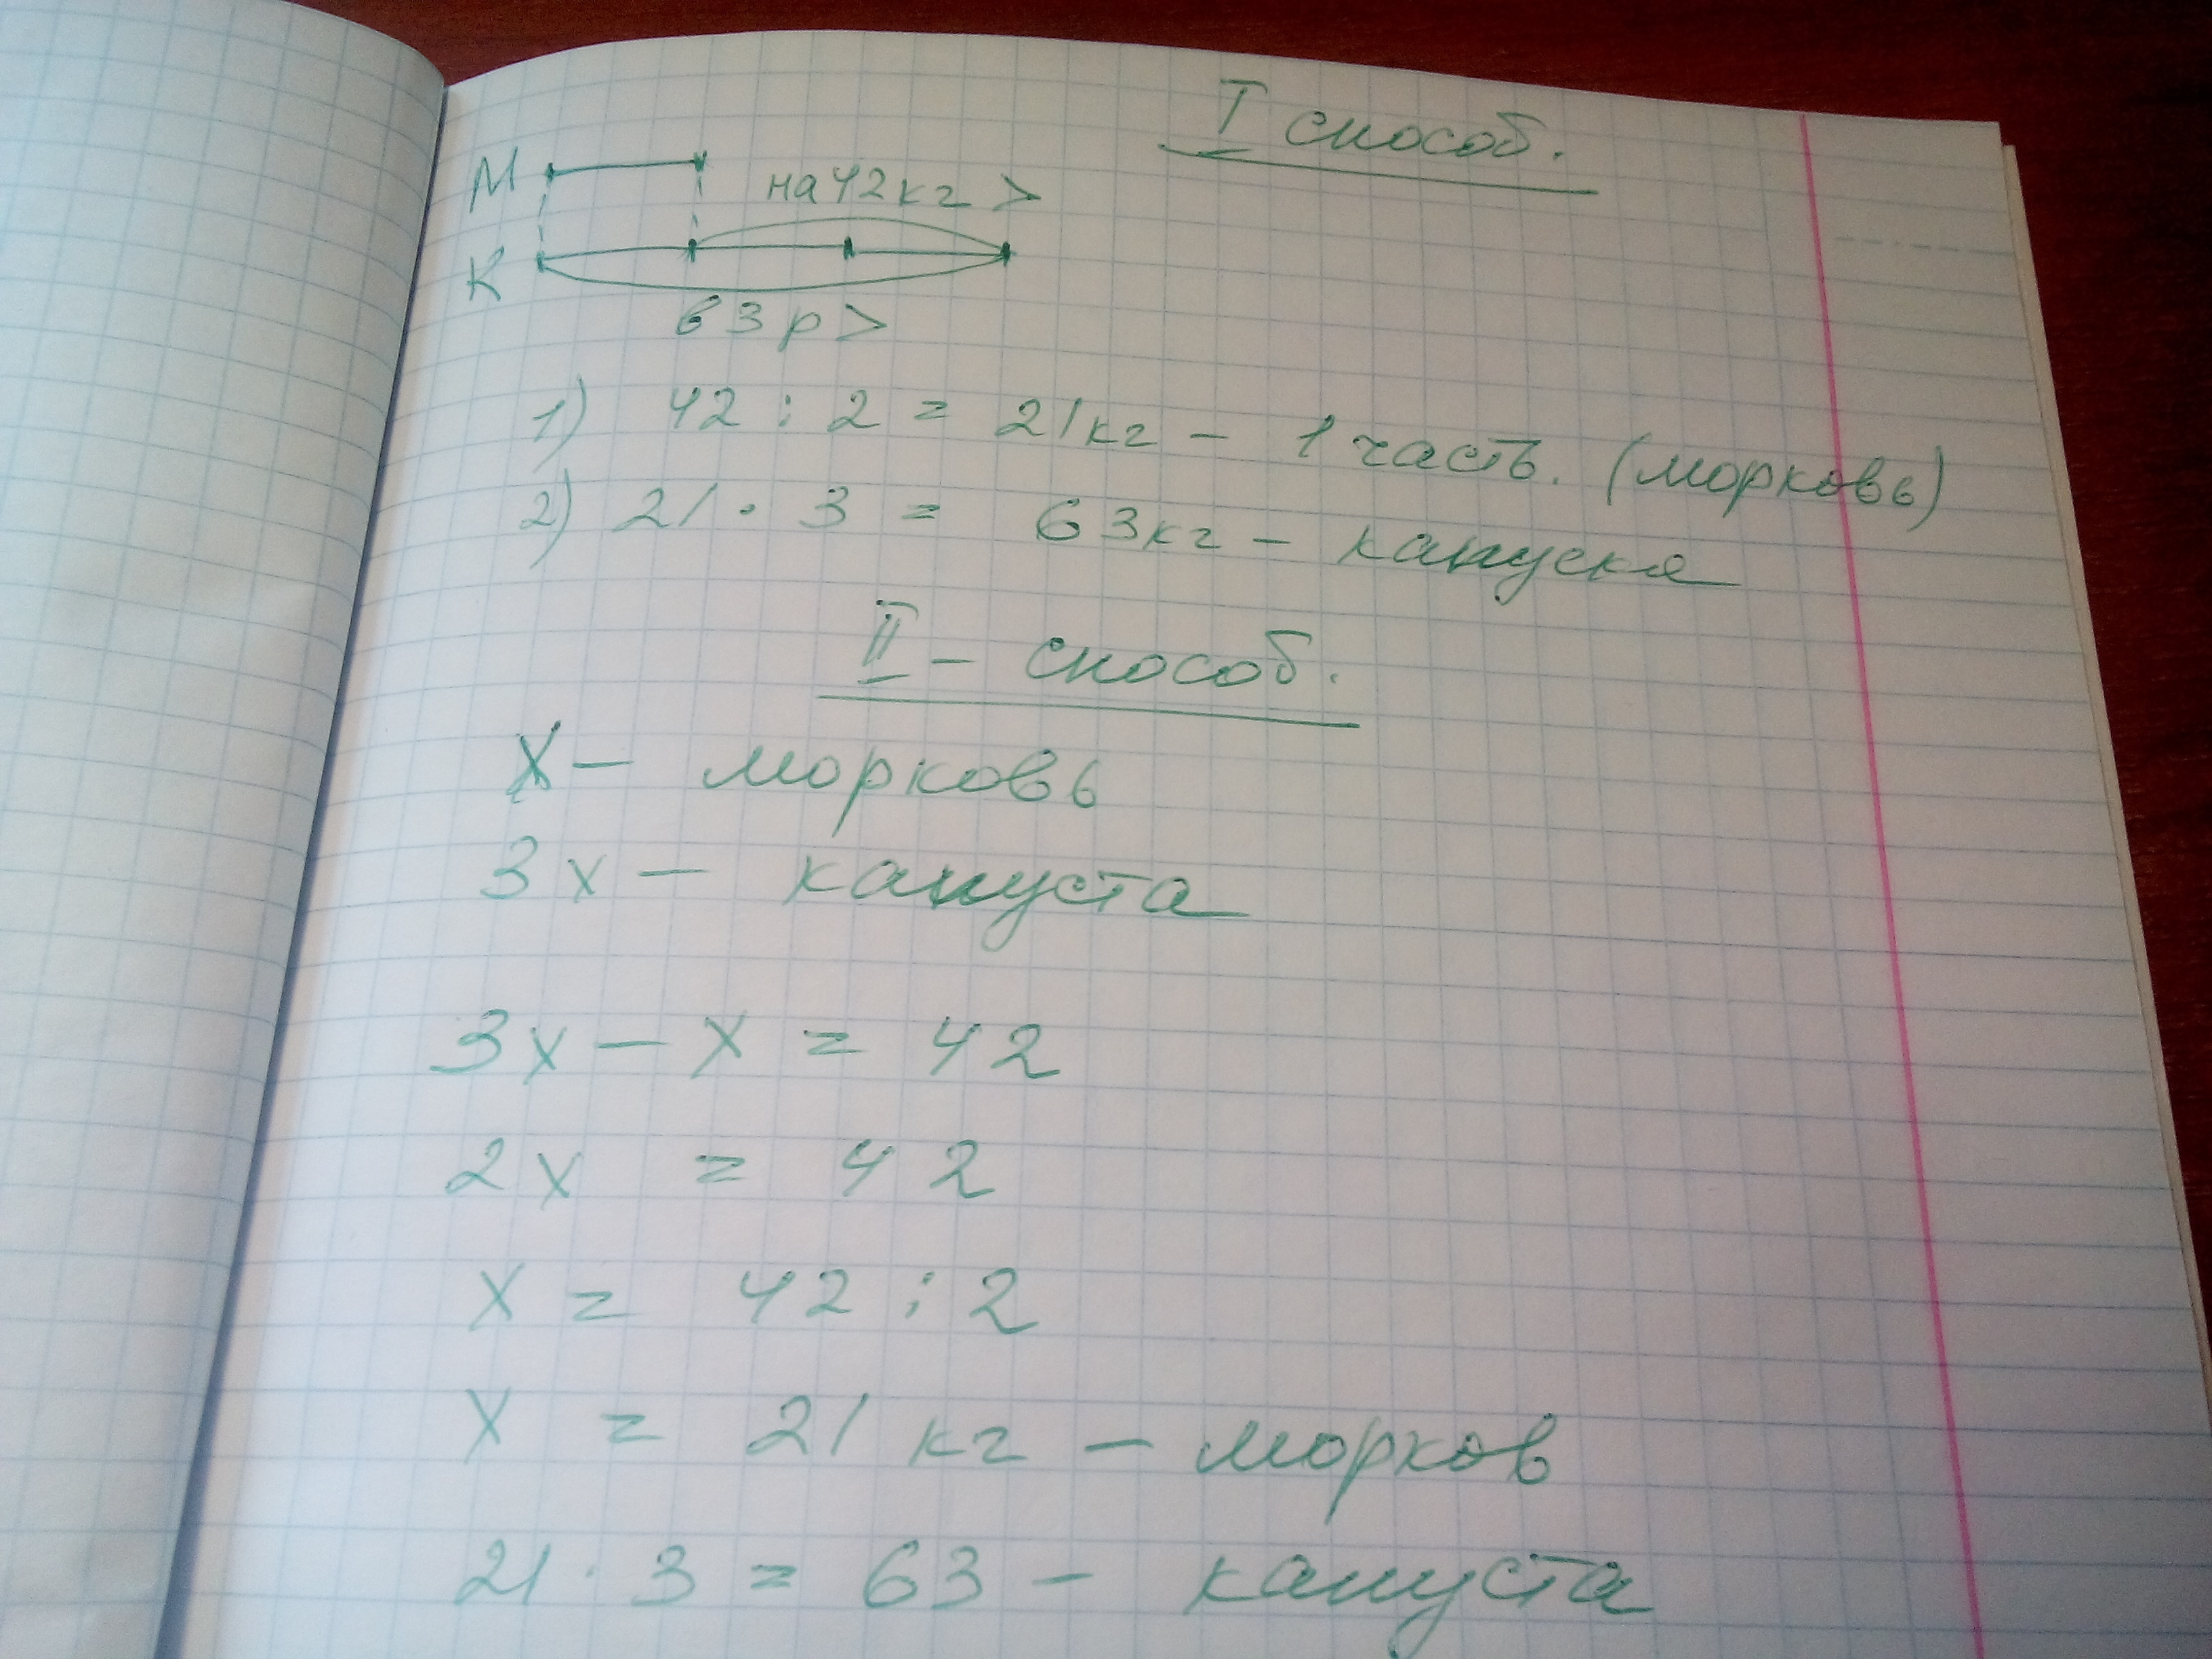 I способ.
М
на 42 кг >
К
в 3 р >
1) 42 : 2 = 21 кг - 1 часть. (морковь)
2) 21 · 3 = 63 кг - капуска
II - способ.
X - морковь
3x - капуста
3x - x = 42
2x = 42
x = 42 : 2
x = 21 кг - морков
21 · 3 = 63 - капуста